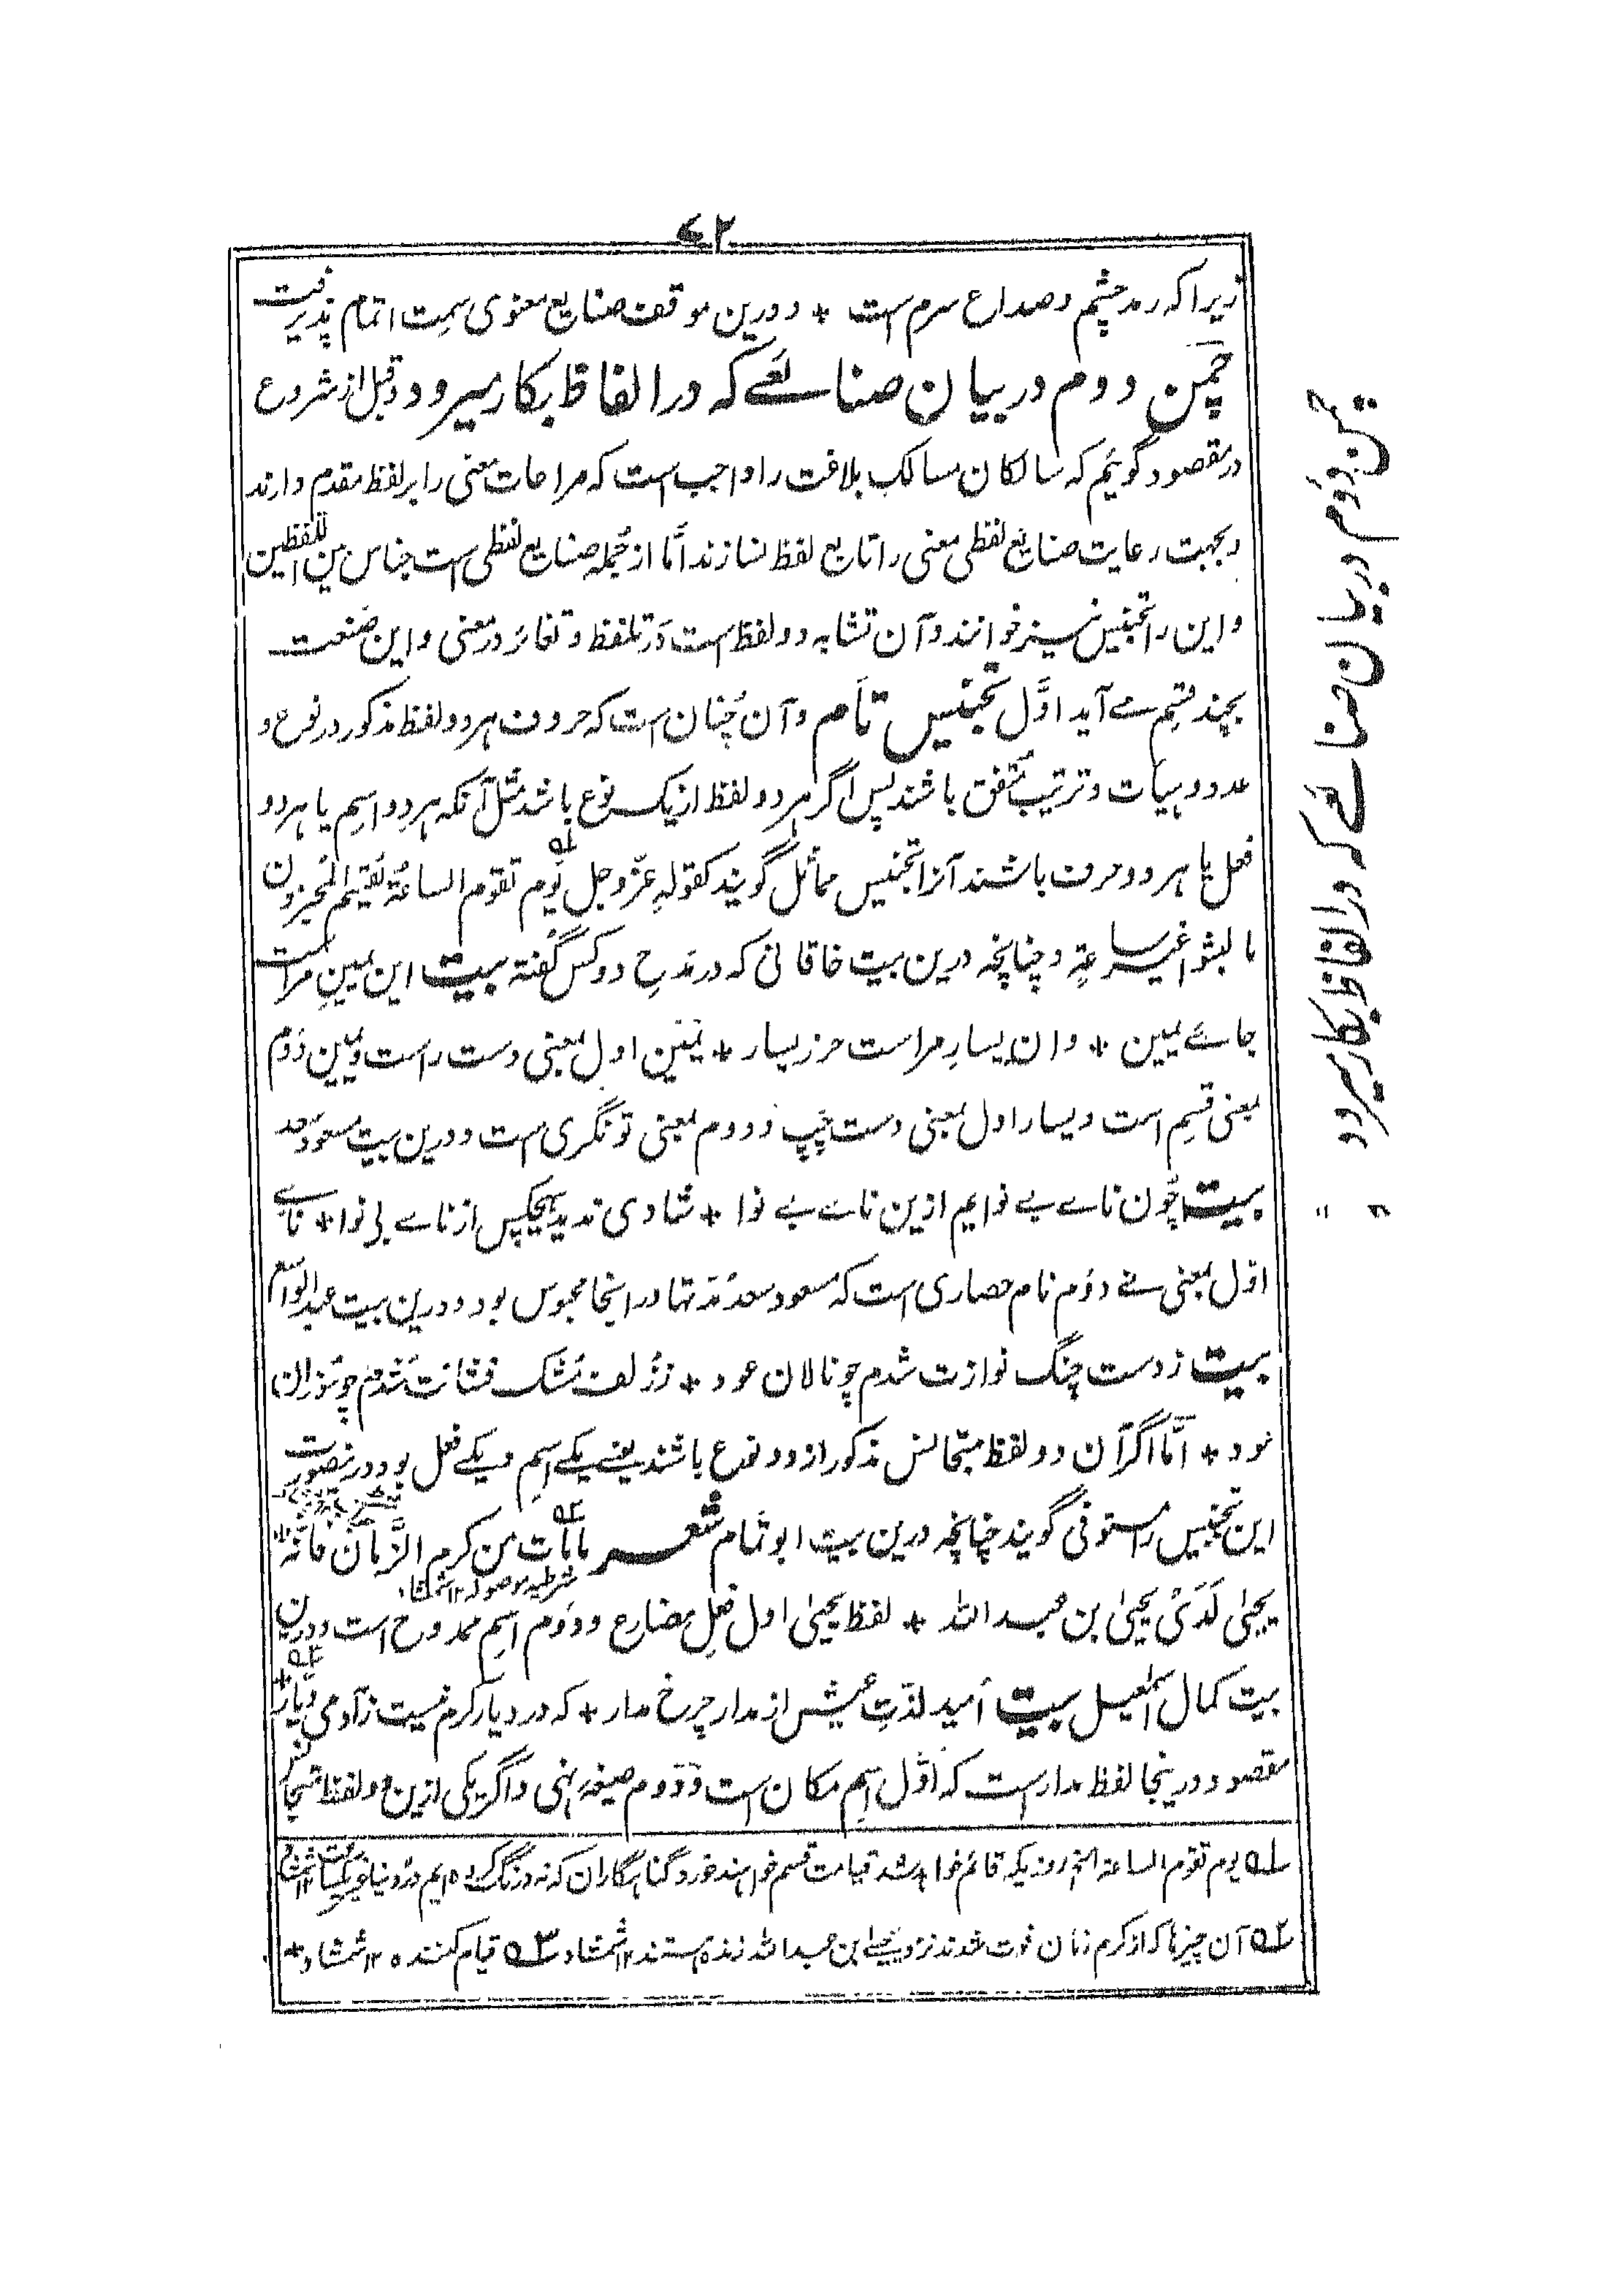 ۷۲
زیرا که رمد چشم و صداع سرم است * و درین موقف صنایع معنوی سمت اتمام پذیرفت
چمن دوم در بیان صنائعے که در الفاظ بکار میرود و قبل از شروع
در مقصود گوئیم که سالکان مسالک بلاغت را واجب است که مراعات معنی را بر لفظ مقدم دارند
و بجهت رعایت صنایع لفظی معنی را تابع لفظ نسازند امّا از جُمله صنایع لفظی است جناس بین اللفظین
و این را تجنیس نیز خوانند و آن تشابه دو لفظ است در تلفظ و تغائر در معنی و این صنعت
بچند قسِم مے آید اوَّل تجنیس تام و آن چُنان است که حروف هر دو لفظ مذکور در نوع و
عدد و هیات و ترتیب متّفق باشند پس اگر هر دو لفظ از یک نوع باشد مثل آنکه هر دو اسِم یا هر دو
فعل یا هر دو حرف باشند آنرا تجنیس مماثل گویند کقولهِ عزّ وجل یَوم تقوم الساعةُ یُقسِمُ المُجرِمُون ۱
ما لبثوا غیر ساعةٍ و چنانچه درین بیت خاقانی که در مَدحِ دو کس گفته بیت این یمینِ مراست
جاے یمین * وان یسارِ مراست حرز یسار * یَمین اول بمعنی دست راست و یمین دوم
بمعنی قسِم است و یسار اول بمعنی دست چَپ و دوم بمعنی تونگری است و درین بیت مسعود سعد
بیت چُون ناے بے نوایم ازین ناے بے نوا * شادی ندید هیچکس از ناے بی نوا * ناے
اوّل بمعنی نے دوُم نام حصاری است که مسعود سعد مدّتها در اینجا محبوس بود و درین بیت عبدالواسع
بیت ز دست چنگ نوازت شدم چو نالان عود * ز زُلف مُشک فشانت شُدم چو سوزان
عود * امَّا اگر آن دو لفظ متجانس مذکور از دو نوع باشند یعنے یکے اسِم و یکے فعل بود درینصورت
این تجنیس را مستوفی گویند چنانچه درین بیت ابو تمّام شعر ما مَات مِن کرم الزَّمان فانّه ۲
شرطیه موصوله ۱۲ شمشاد
یَحییٰ لَدَیْ یَحییٰ بن عبد الله * لفظ یحییٰ اول فعلِ مضارع و دوَم اسِم ممدوح است و درین
بیت کمال اسمٰعیل بیت اُمید لذّتِ عَیش از مدار چرخ مدار * که در دیار کرم نیست ز آدمی دیّار * ۳
مقصود درینجا لفظ مدار است که اوّل اسِم مکان است و دوم صیغۀ نهی و اگر یکی ازین دو لفظ متجانس
۱ یوم تقوم الساعة الخ روزیکه قائم خواهد شد قیامت قسم خواهند خورد گناهگاران که نه درنگ کرده ایم در دنیا غیر یکساعت ۱۲ شمشاد
۲ آن چیزها که از کرم زمان فوت شدند نزد یحیی ابن عبدالله زنده هستند ۱۲ شمشاد ۳ قیام کننده ۱۲ شمشاد *
چمن دوم در بیان صنائعے که در الفاظ بکار میرود